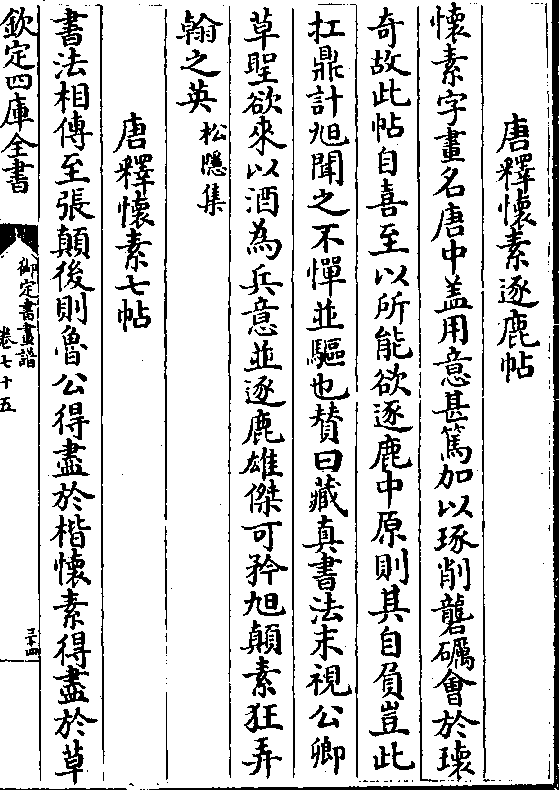 唐釋懷素逐鹿帖
懷素字畫名唐中葢用意甚篤加以琢削礱礪會於瓌
奇故此帖自喜至以所能欲逐鹿中原則其自負豈此
扛鼎計旭聞之不憚並驅也賛曰藏真書法末視公卿
草聖欲來以酒為兵意並逐鹿雄傑可矜旭顛素狂弄
翰之英松隱集
唐釋懷素七帖
書法相傳至張顛後則魯公得盡於楷懷素得盡於草
欽定四庫全書
御定書畫譜
卷七十五
三十四